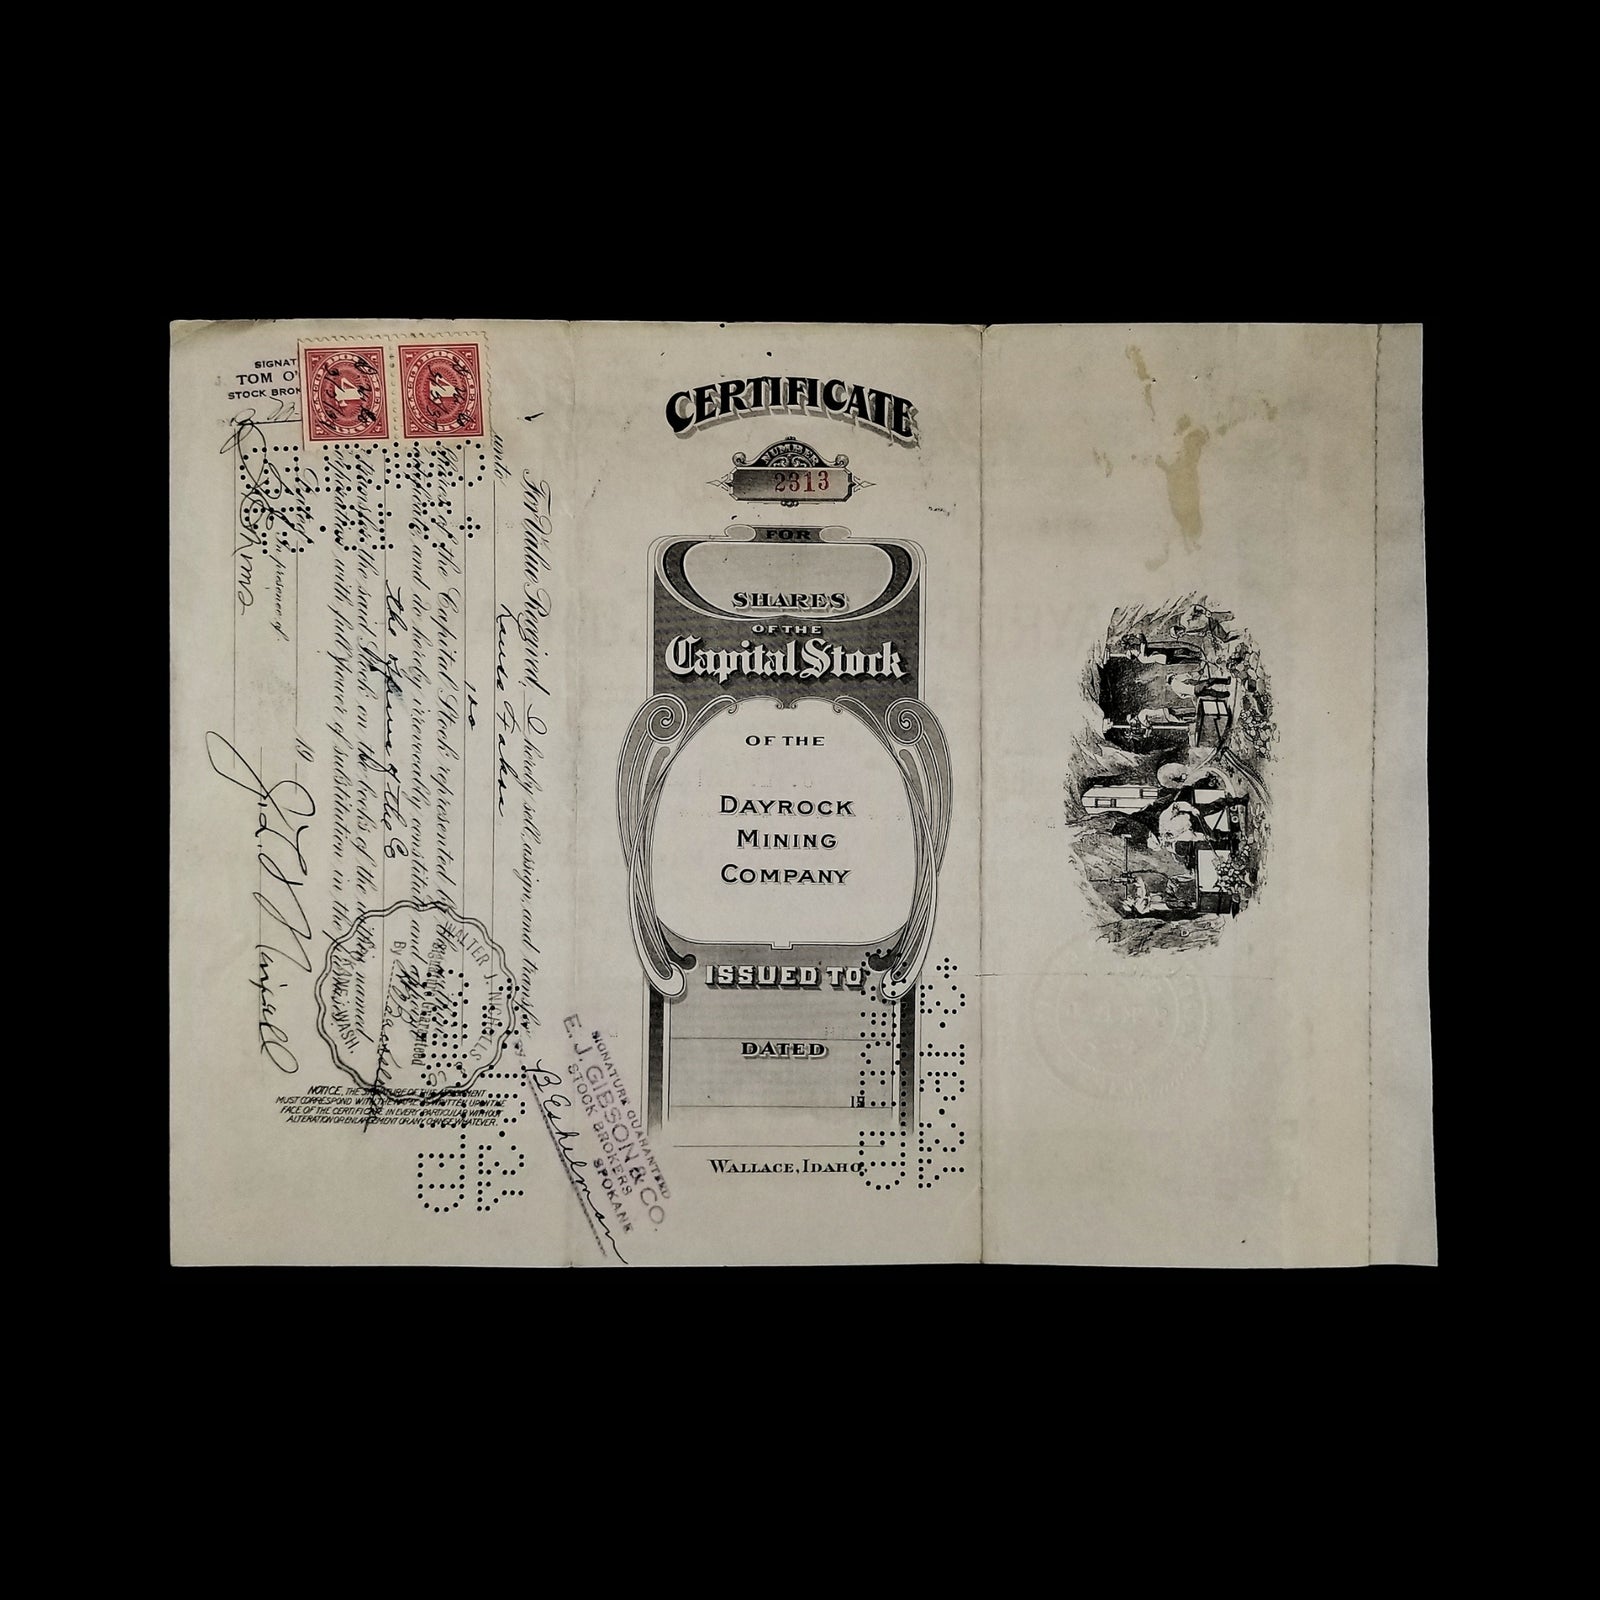 CERTIFICATE
NUMBER
2313
FOR
SHARES
OF THE
Capital Stock
OF THE
DAYROCK
MINING
COMPANY
ISSUED TO
DATED
19
WALLACE, IDAHO
SIGNATURE GUARANTEED
E. J. GIBSON & CO.
STOCK BROKERS
SPOKANE
B Eshelman
For Value Received, I hereby sell, assign, and transfer
unto
100
Shares of the Capital Stock represented by the within
Certificate, and do hereby irrevocably constitute and appoint
to transfer the said Stock on the books of the within named
Corporation with full power of substitution in the premises.
Dated 19
In presence of
WALTER J. NICHOLLS
Signature Guaranteed
By
SPOKANE, WASH.
NOTICE, THE SIGNATURE OF THIS ASSIGNMENT
MUST CORRESPOND WITH THE NAME AS WRITTEN UPON THE
FACE OF THE CERTIFICATE IN EVERY PARTICULAR WITHOUT
ALTERATION OR ENLARGEMENT OR ANY CHANGE WHATEVER.
SIGNAT
TOM O'
STOCK BROK
4
4